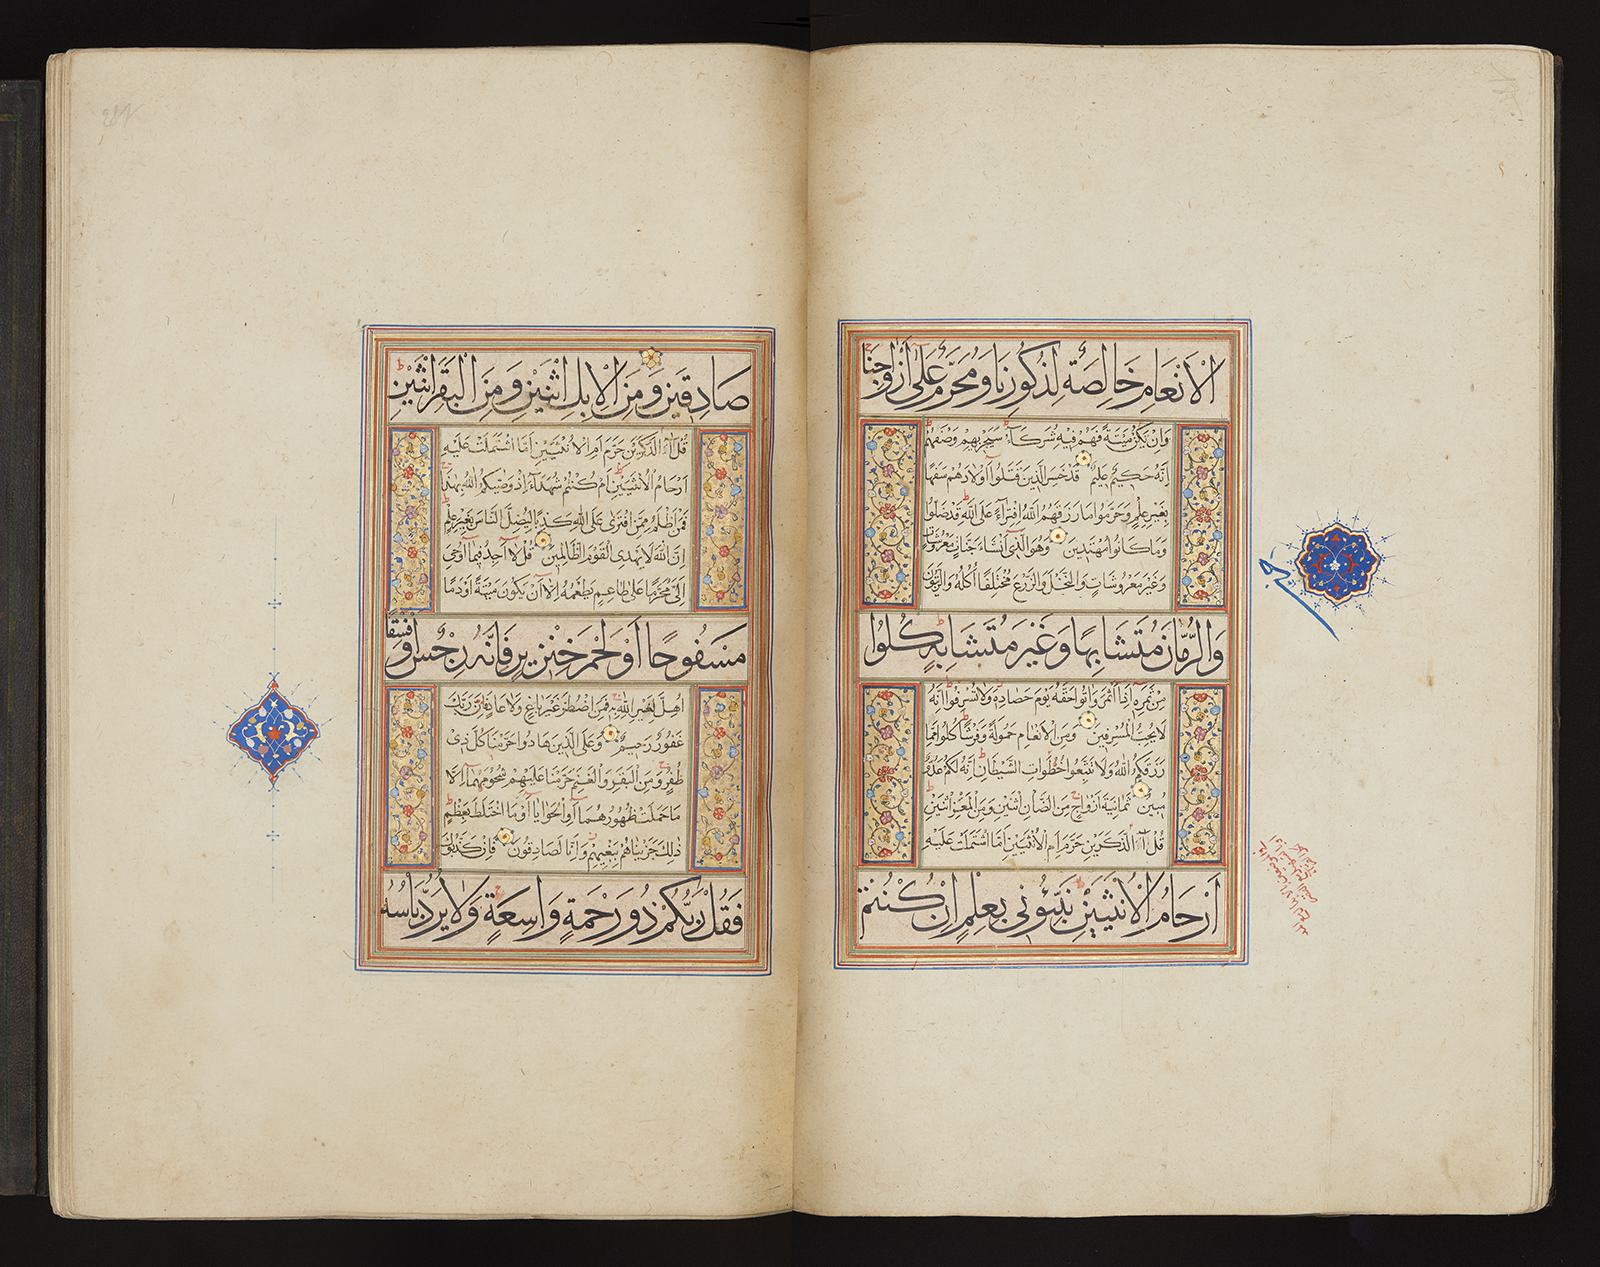 الْأَنْعَامِ خَالِصَةٌ لِذُكُورِنَا وَمُحَرَّمٌ عَلَى أَزْوَاجِنَا
وَإِنْ يَكُنْ مَيْتَةً فَهُمْ فِيهِ شُرَكَاءُ سَيَجْزِيهِمْ وَصْفَهُمْ
إِنَّهُ حَكِيمٌ عَلِيمٌ قَدْ خَسِرَ الَّذِينَ قَتَلُوا أَوْلَادَهُمْ سَفَهًا
بِغَيْرِ عِلْمٍ وَحَرَّمُوا مَا رَزَقَهُمُ اللَّهُ افْتِرَاءً عَلَى اللَّهِ قَدْ ضَلُّوا
وَمَا كَانُوا مُهْتَدِينَ وَهُوَ الَّذِي أَنْشَأَ جَنَّاتٍ مَعْرُوشَاتٍ
وَغَيْرَ مَعْرُوشَاتٍ وَالنَّخْلَ وَالزَّرْعَ مُخْتَلِفًا أُكُلُهُ وَالزَّيْتُونَ
وَالرُّمَّانَ مُتَشَابِهًا وَغَيْرَ مُتَشَابِهٍ كُلُوا
مِنْ ثَمَرِهِ إِذَا أَثْمَرَ وَآتُوا حَقَّهُ يَوْمَ حَصَادِهِ وَلَا تُسْرِفُوا إِنَّهُ
لَا يُحِبُّ الْمُسْرِفِينَ وَمِنَ الْأَنْعَامِ حَمُولَةً وَفَرْشًا كُلُوا مِمَّا
رَزَقَكُمُ اللَّهُ وَلَا تَتَّبِعُوا خُطُوَاتِ الشَّيْطَانِ إِنَّهُ لَكُمْ عَدُوٌّ
مُبِينٌ ثَمَانِيَةَ أَزْوَاجٍ مِنَ الضَّأْنِ اثْنَيْنِ وَمِنَ الْمَعْزِ اثْنَيْنِ
قُلْ آلذَّكَرَيْنِ حَرَّمَ أَمِ الْأُنْثَيَيْنِ أَمَّا اشْتَمَلَتْ عَلَيْهِ
أَرْحَامُ الْأُنْثَيَيْنِ نَبِّئُونِي بِعِلْمٍ إِنْ كُنْتُمْ
صَادِقِينَ وَمِنَ الْإِبِلِ اثْنَيْنِ وَمِنَ الْبَقَرِ اثْنَيْنِ
قُلْ آلذَّكَرَيْنِ حَرَّمَ أَمِ الْأُنْثَيَيْنِ أَمَّا اشْتَمَلَتْ عَلَيْهِ
أَرْحَامُ الْأُنْثَيَيْنِ أَمْ كُنْتُمْ شُهَدَاءَ إِذْ وَصَّيكُمُ اللَّهُ بِهَذَا
فَمَنْ أَظْلَمُ مِمَّنِ افْتَرَى عَلَى اللَّهِ كَذِبًا لِيُضِلَّ النَّاسَ بِغَيْرِ عِلْمٍ
إِنَّ اللَّهَ لَا يَهْدِي الْقَوْمَ الظَّالِمِينَ قُلْ لَا أَجِدُ فِيمَا أُوحِيَ
إِلَيَّ مُحَرَّمًا عَلَى طَاعِمٍ يَطْعَمُهُ إِلَّا أَنْ يَكُونَ مَيْتَةً أَوْ دَمًا
مَسْفُوحًا أَوْ لَحْمَ خِنْزِيرٍ فَإِنَّهُ رِجْسٌ أَوْ فِسْقًا
أُهِلَّ لِغَيْرِ اللَّهِ بِهِ فَمَنِ اضْطُرَّ غَيْرَ بَاغٍ وَلَا عَادٍ فَإِنَّ رَبَّكَ
غَفُورٌ رَحِيمٌ وَعَلَى الَّذِينَ هَادُوا حَرَّمْنَا كُلَّ ذِي
ظُفُرٍ وَمِنَ الْبَقَرِ وَالْغَنَمِ حَرَّمْنَا عَلَيْهِمْ شُحُومَهُمَا إِلَّا
مَا حَمَلَتْ ظُهُورُهُمَا أَوِ الْحَوَايَا أَوْ مَا اخْتَلَطَ بِعَظْمٍ
ذَلِكَ جَزَيْنَاهُمْ بِبَغْيِهِمْ وَإِنَّا لَصَادِقُونَ فَإِنْ كَذَّبُوكَ
فَقُلْ رَبُّكُمْ ذُو رَحْمَةٍ وَاسِعَةٍ وَلَا يُرَدُّ بَأْسُهُ